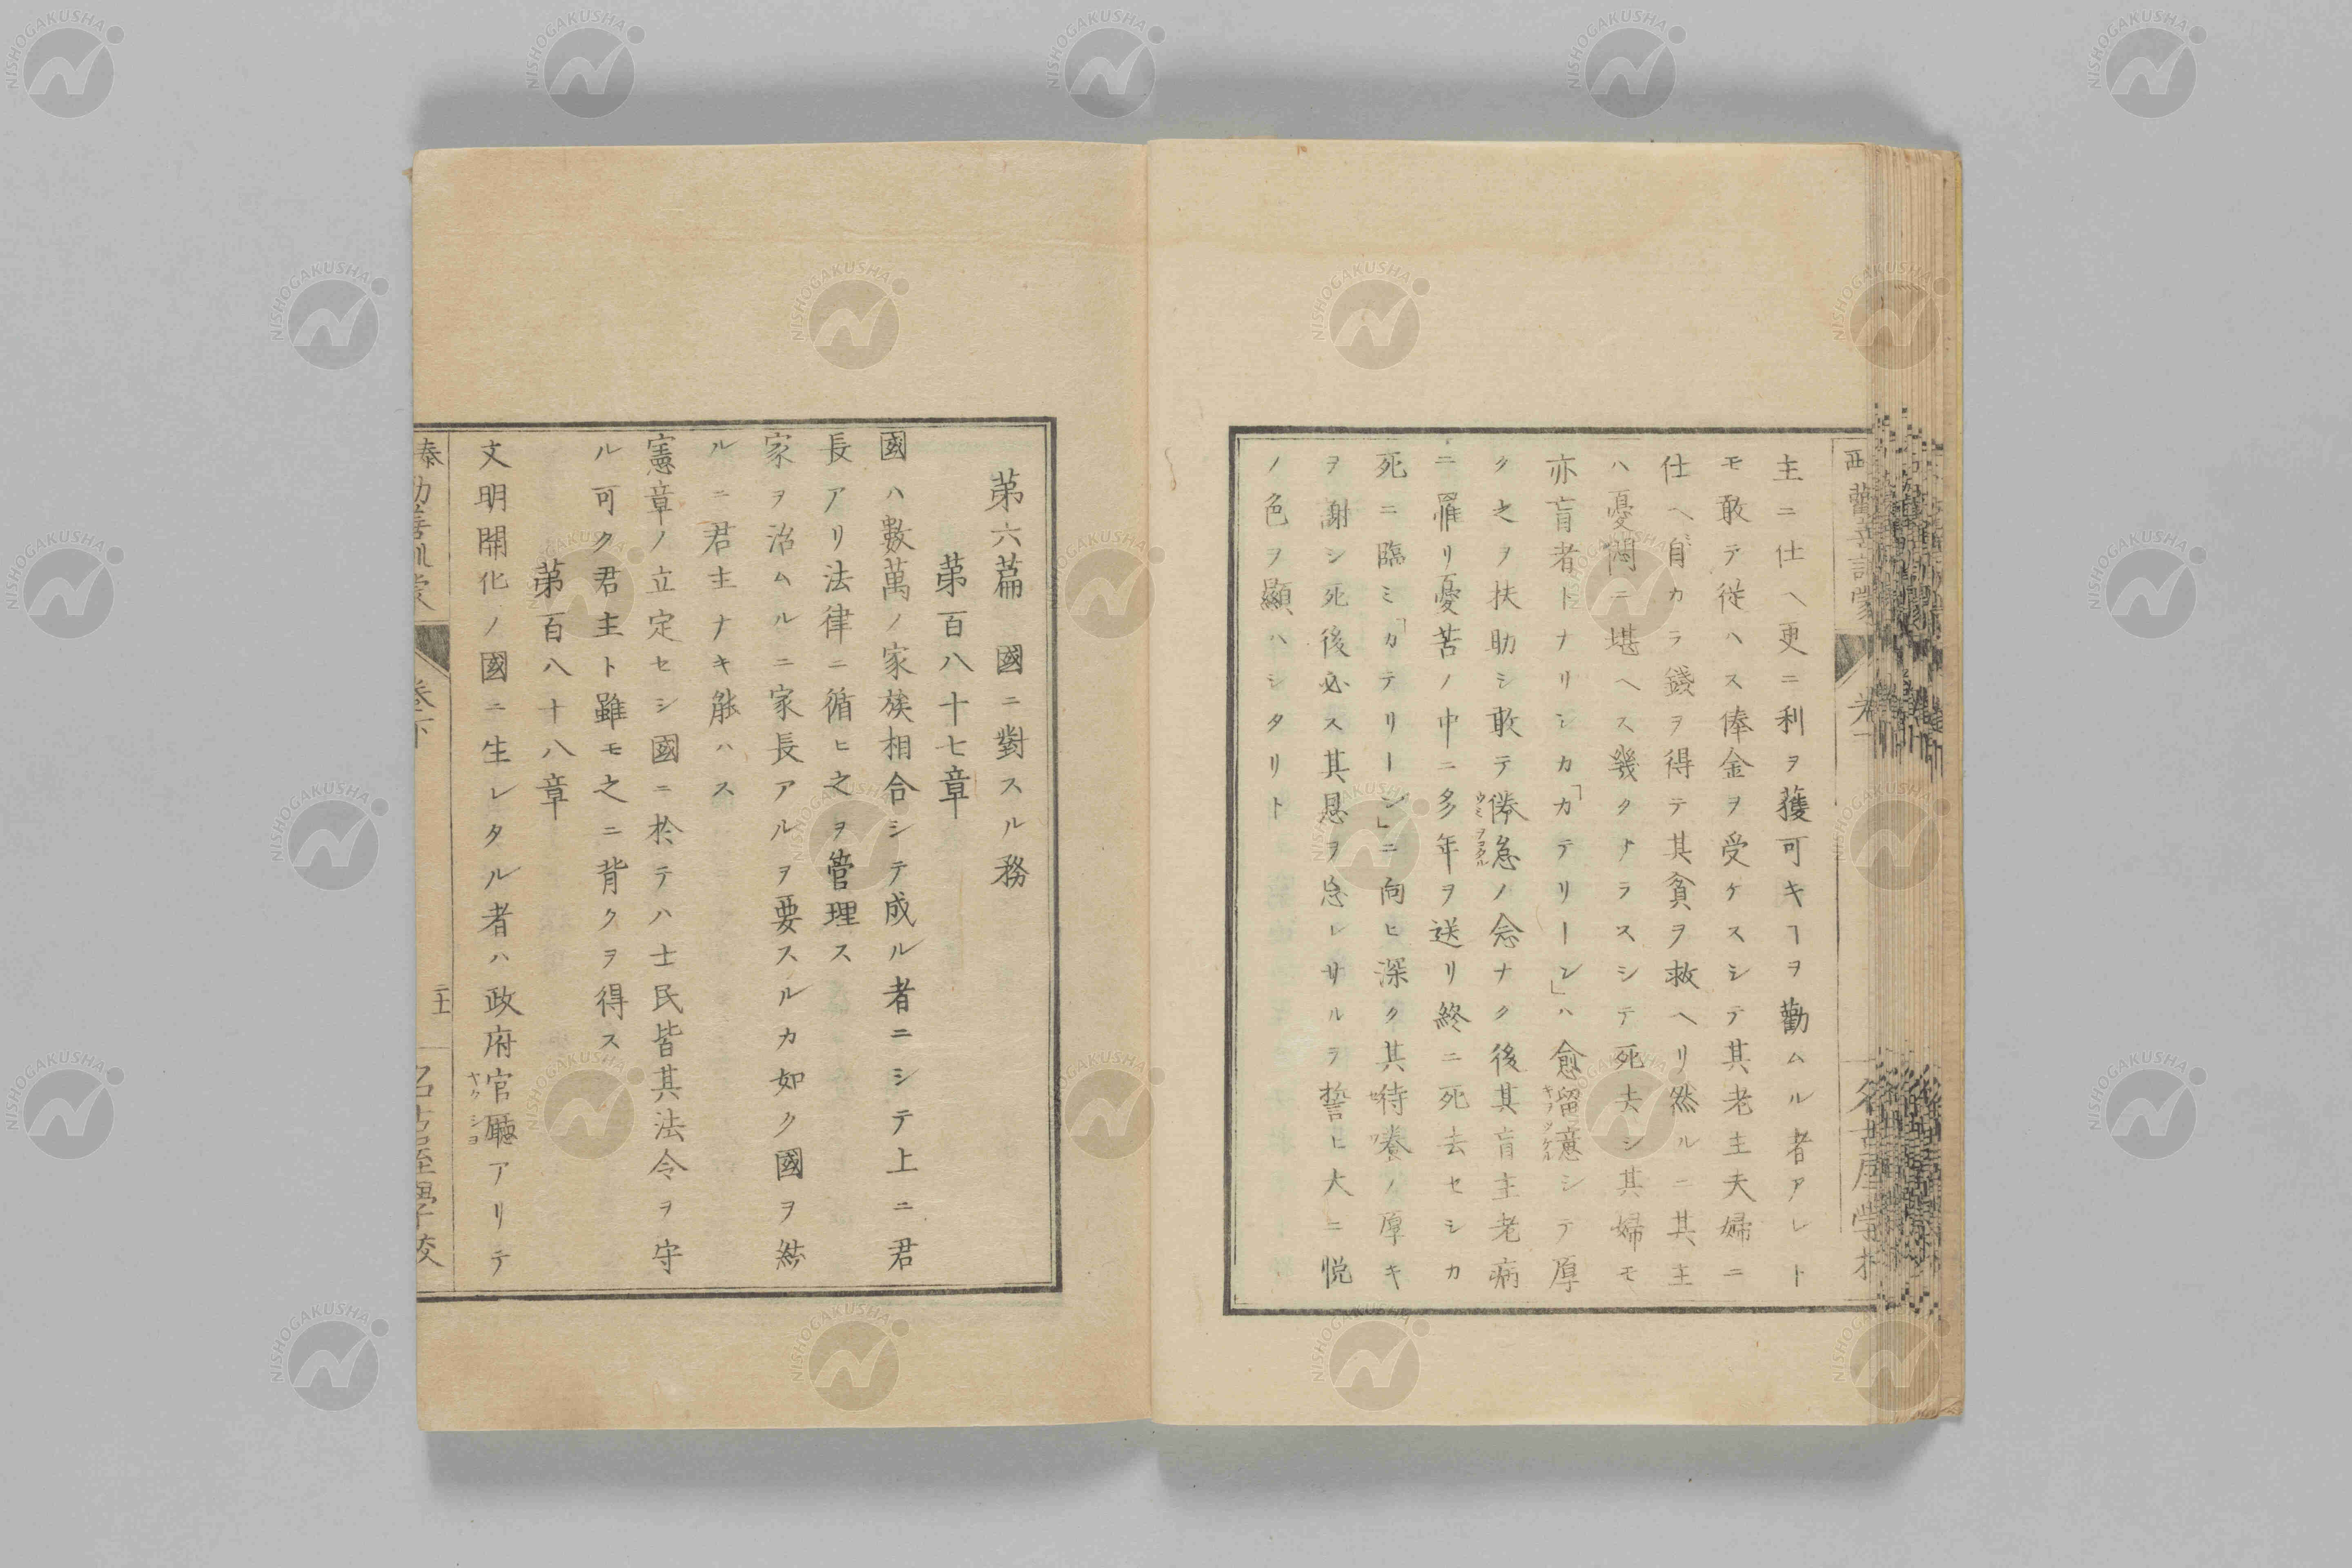 主ニ仕ヘ更ニ利ヲ獲可キヿヲ勸ムル者アレト
モ敢テ従ハス俸金ヲ受ケスシテ其老主夫婦ニ
仕ヘ自カラ錢ヲ得テ其貧ヲ救ヘリ然ルニ其主
ハ憂悶ニ堪ヘス幾クナラスシテ死去シ其婦モ
亦盲者トナリシカ「カテリーン」ハ愈留意シテ厚
ク之ヲ扶助シ敢テ倦怠ノ念ナク後其盲主老病
ニ罹リ憂苦ノ中ニ多年ヲ送リ終ニ死去セシカ
死ニ臨ミ「カテリーン」ニ向ヒ深ク其待養ノ厚キ
ヲ謝シ死後必ス其恩ヲ忘レサルヲ誓ヒ大ニ悦
ノ色ヲ顯ハシタリト
第六篇 國ニ對スル務
第百八十七章
國ハ數萬ノ家族相合シテ成ル者ニシテ上ニ君
長アリ法律ニ循ヒ之ヲ管理ス
家ヲ治ムルニ家長アルヲ要スルカ如ク國ヲ統
ルニ君主ナキ能ハス
憲章ノ立定セシ國ニ於テハ士民皆其法令ヲ守
ル可ク君主ト雖モ之ニ背クヲ得ス
第百八十八章
文明開化ノ國ニ生レタル者ハ政府官廳アリテ
ヤクシヨ
泰西勸善訓蒙
卷下
名古屋學校
NISHOGAKUSHA